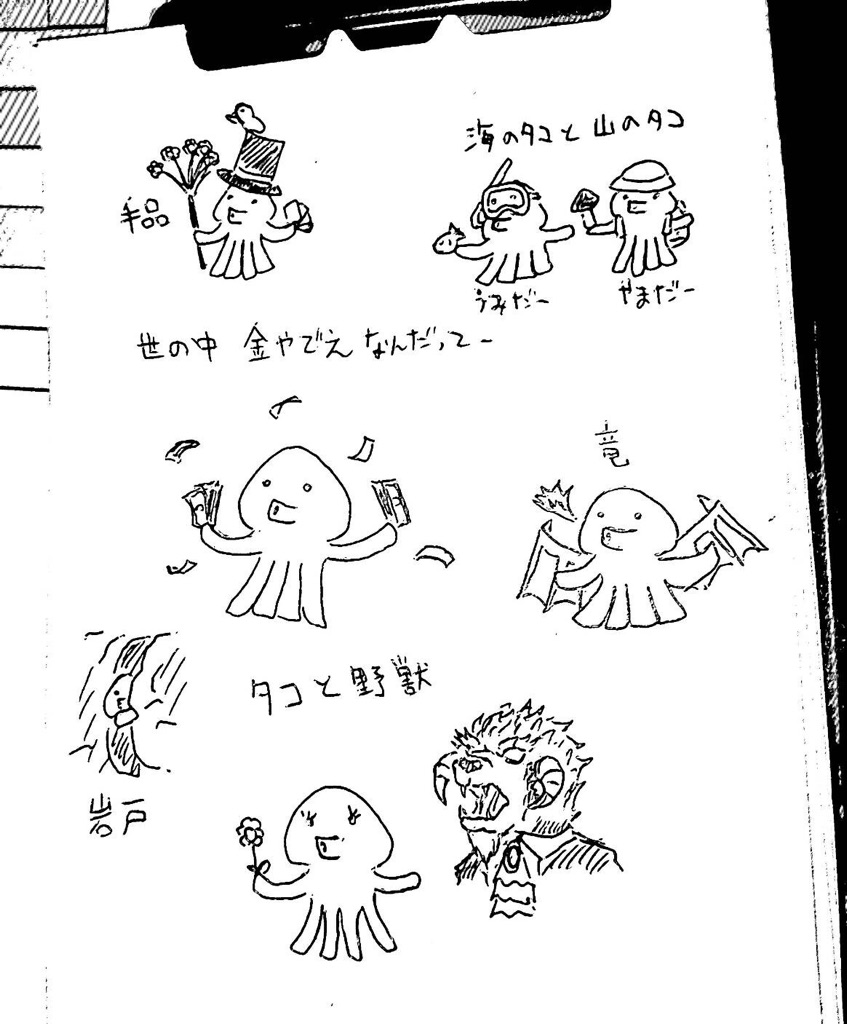 手品
海のタコと山のタコ
うみだー
やまだー
世の中 金やでえ なんだってー
竜
タコと野獣
岩戸